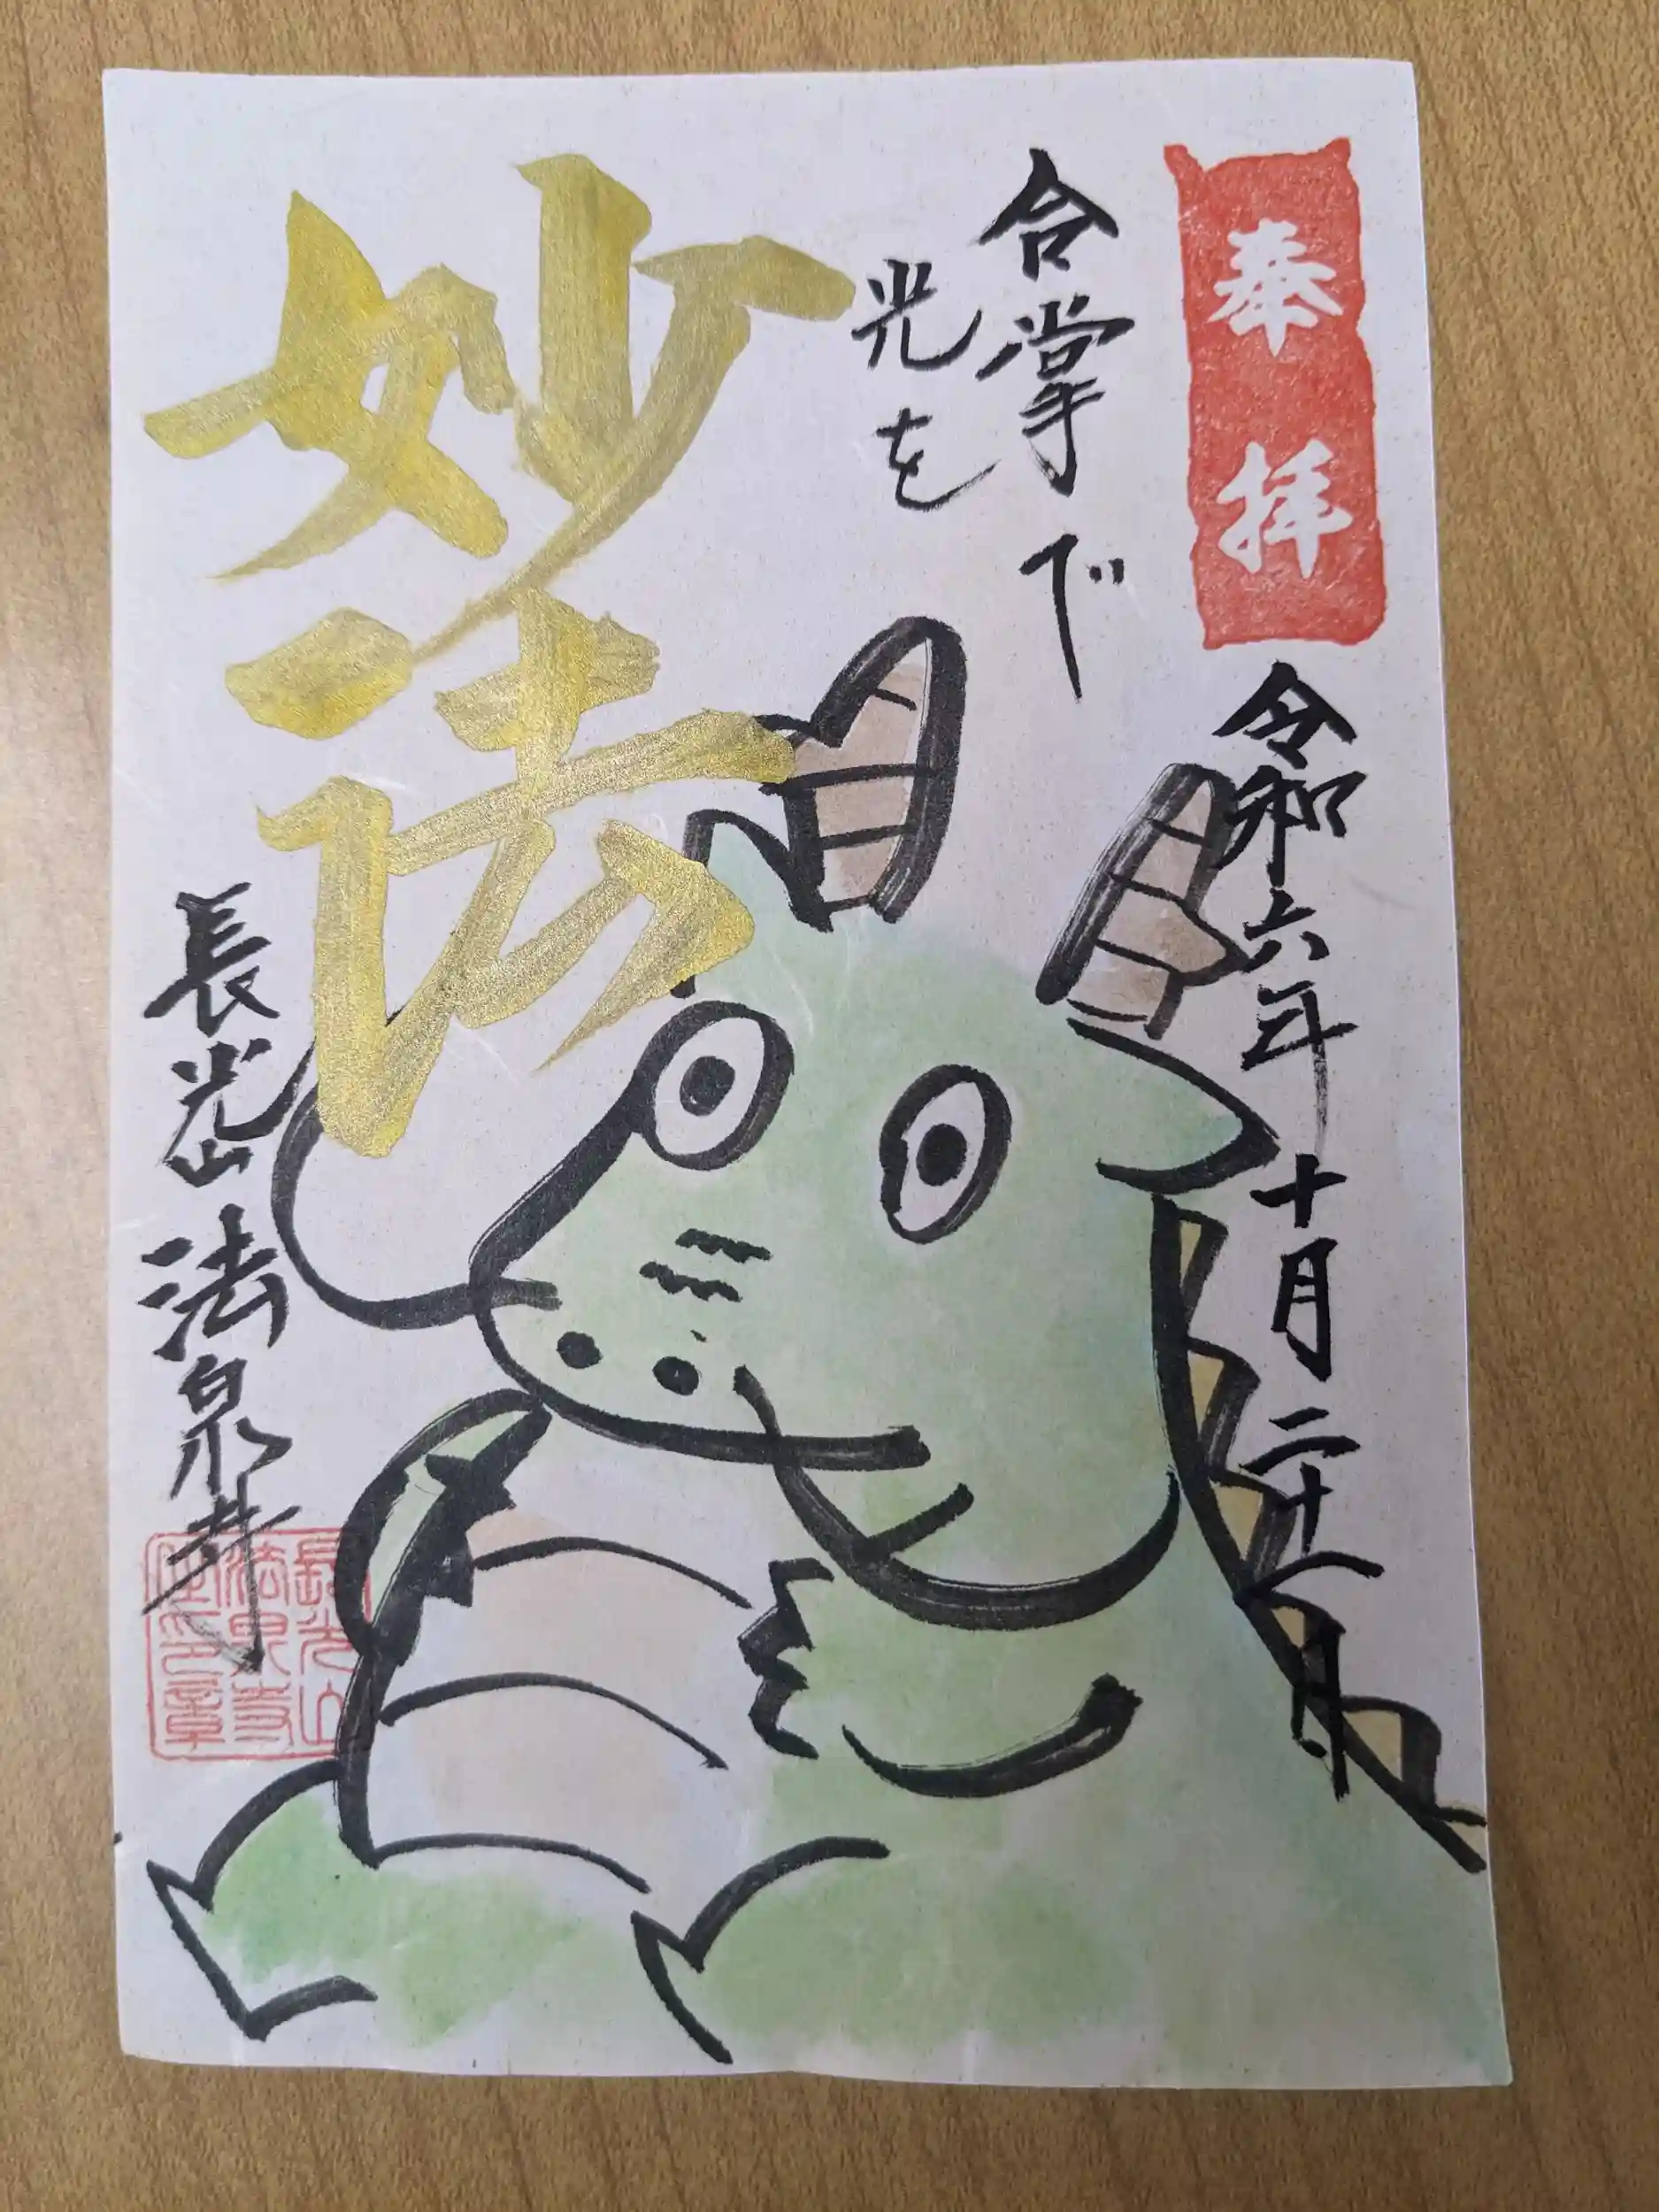 奉拝
令和六年十月二十八日
合掌で
光を
妙法
長光山 法泉寺
長光山
法泉寺
印章